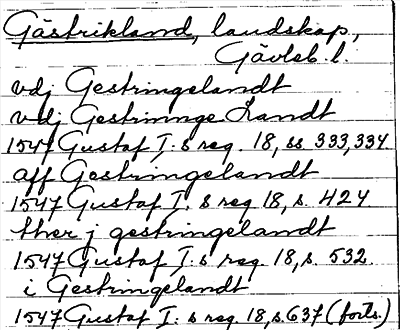 Gästrikland, landskap,
Gävleb. l.
vdj Gestringelandt
vdj Gestrininge Landt
1547 Gustaf I:s reg. 18, ss 333, 334
aff Gestringelandt
1547 Gustaf I:s reg 18, s. 424
ther j gestringelandt
1547 Gustaf I:s reg. 18, s. 532
i Gestringelandt
1547 Gustaf I:s reg. 18, s. 637 (forts.)